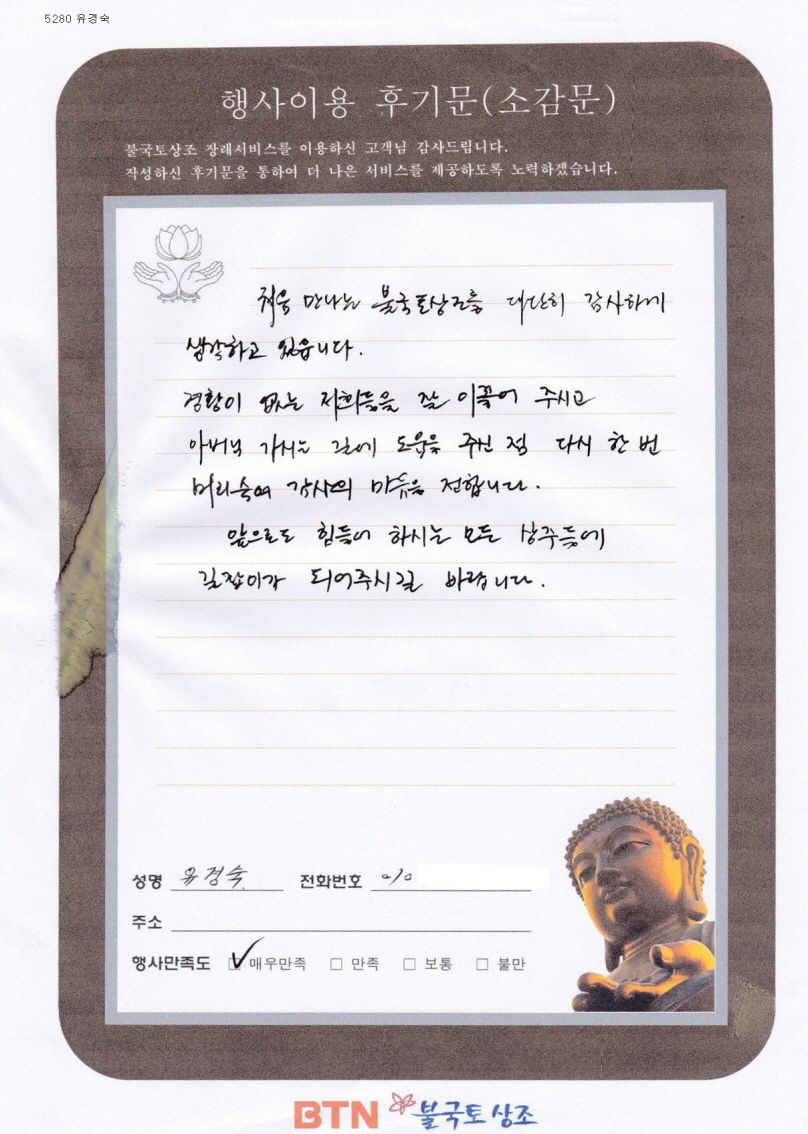 5280 유경숙
행사이용 후기문(소감문)
불국토상조 장례서비스를 이용하신 고객님 감사드립니다.
작성하신 후기문을 통하여 더 나은 서비스를 제공하도록 노력하겠습니다.
처음 만나는 불국토상조를 대단히 감사하게
생각하고 있읍니다.
경황이 없는 저희들을 잘 이끌어 주시고
아버님 가시는 길에 도움을 주신 점 다시 한 번
머리숙여 감사의 마음을 전합니다.
앞으로도 힘들어 하시는 모든 상주들에
길잡이가 되어주시길 바랍니다.
성명 유경숙 전화번호 010
주소
행사만족도 ☑ 매우만족 □ 만족 □ 보통 □ 불만
BTN 불국토상조